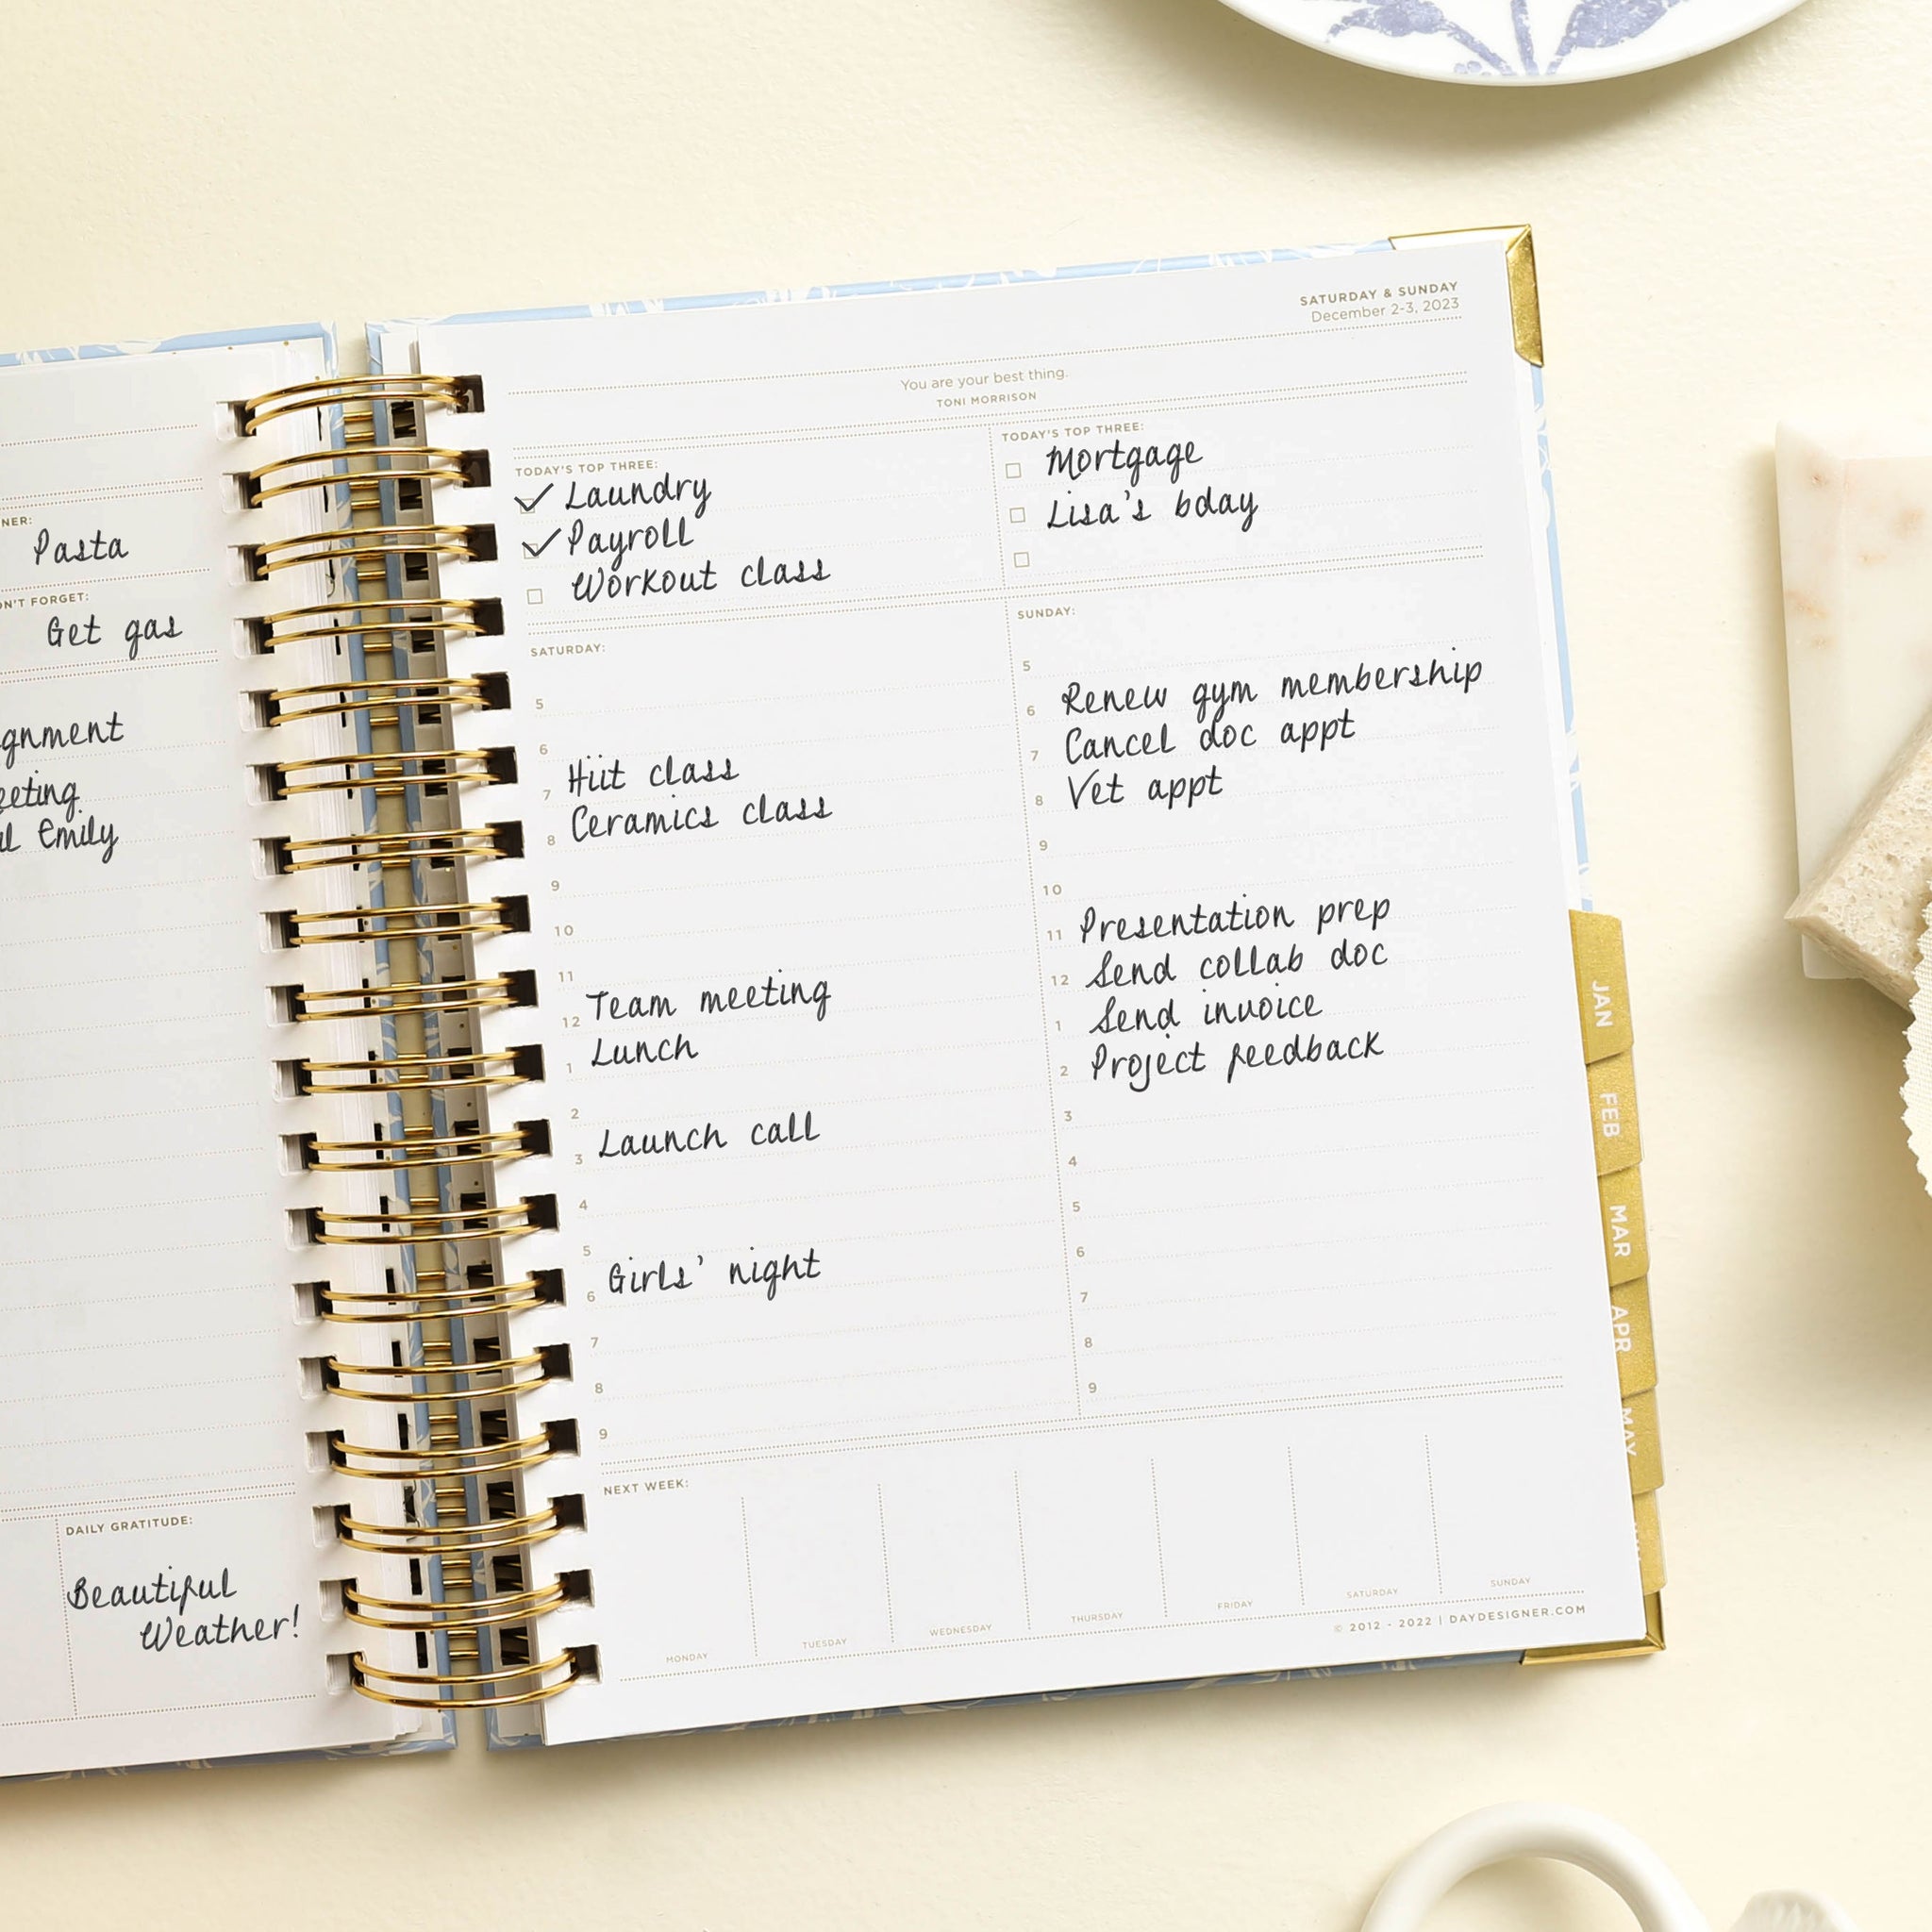 NER:
Pasta
N'T FORGET:
Get gas
gnment
eeting
Emily
DAILY GRATITUDE:
Beautiful
Weather!
SATURDAY & SUNDAY
December 2-3, 2023
You are your best thing.
TONI MORRISON
TODAY'S TOP THREE:
Laundry
Payroll
Workout class
TODAY'S TOP THREE:
Mortgage
Lisa's bday
SATURDAY:
5
6
7 Hiit class
8 Ceramics class
9
10
11
12 Team meeting
1 Lunch
2
3 Launch call
4
5
6 Girls' night
7
8
9
SUNDAY:
5
6 Renew gym membership
7 Cancel doc appt
8 Vet appt
9
10
11 Presentation prep
12 Send collab doc
1 Send invoice
2 Project feedback
3
4
5
6
7
8
9
NEXT WEEK:
MONDAY
TUESDAY
WEDNESDAY
THURSDAY
FRIDAY
SATURDAY
SUNDAY
© 2012 - 2022 | DAYDESIGNER.COM
JAN
FEB
MAR
APR
MAY